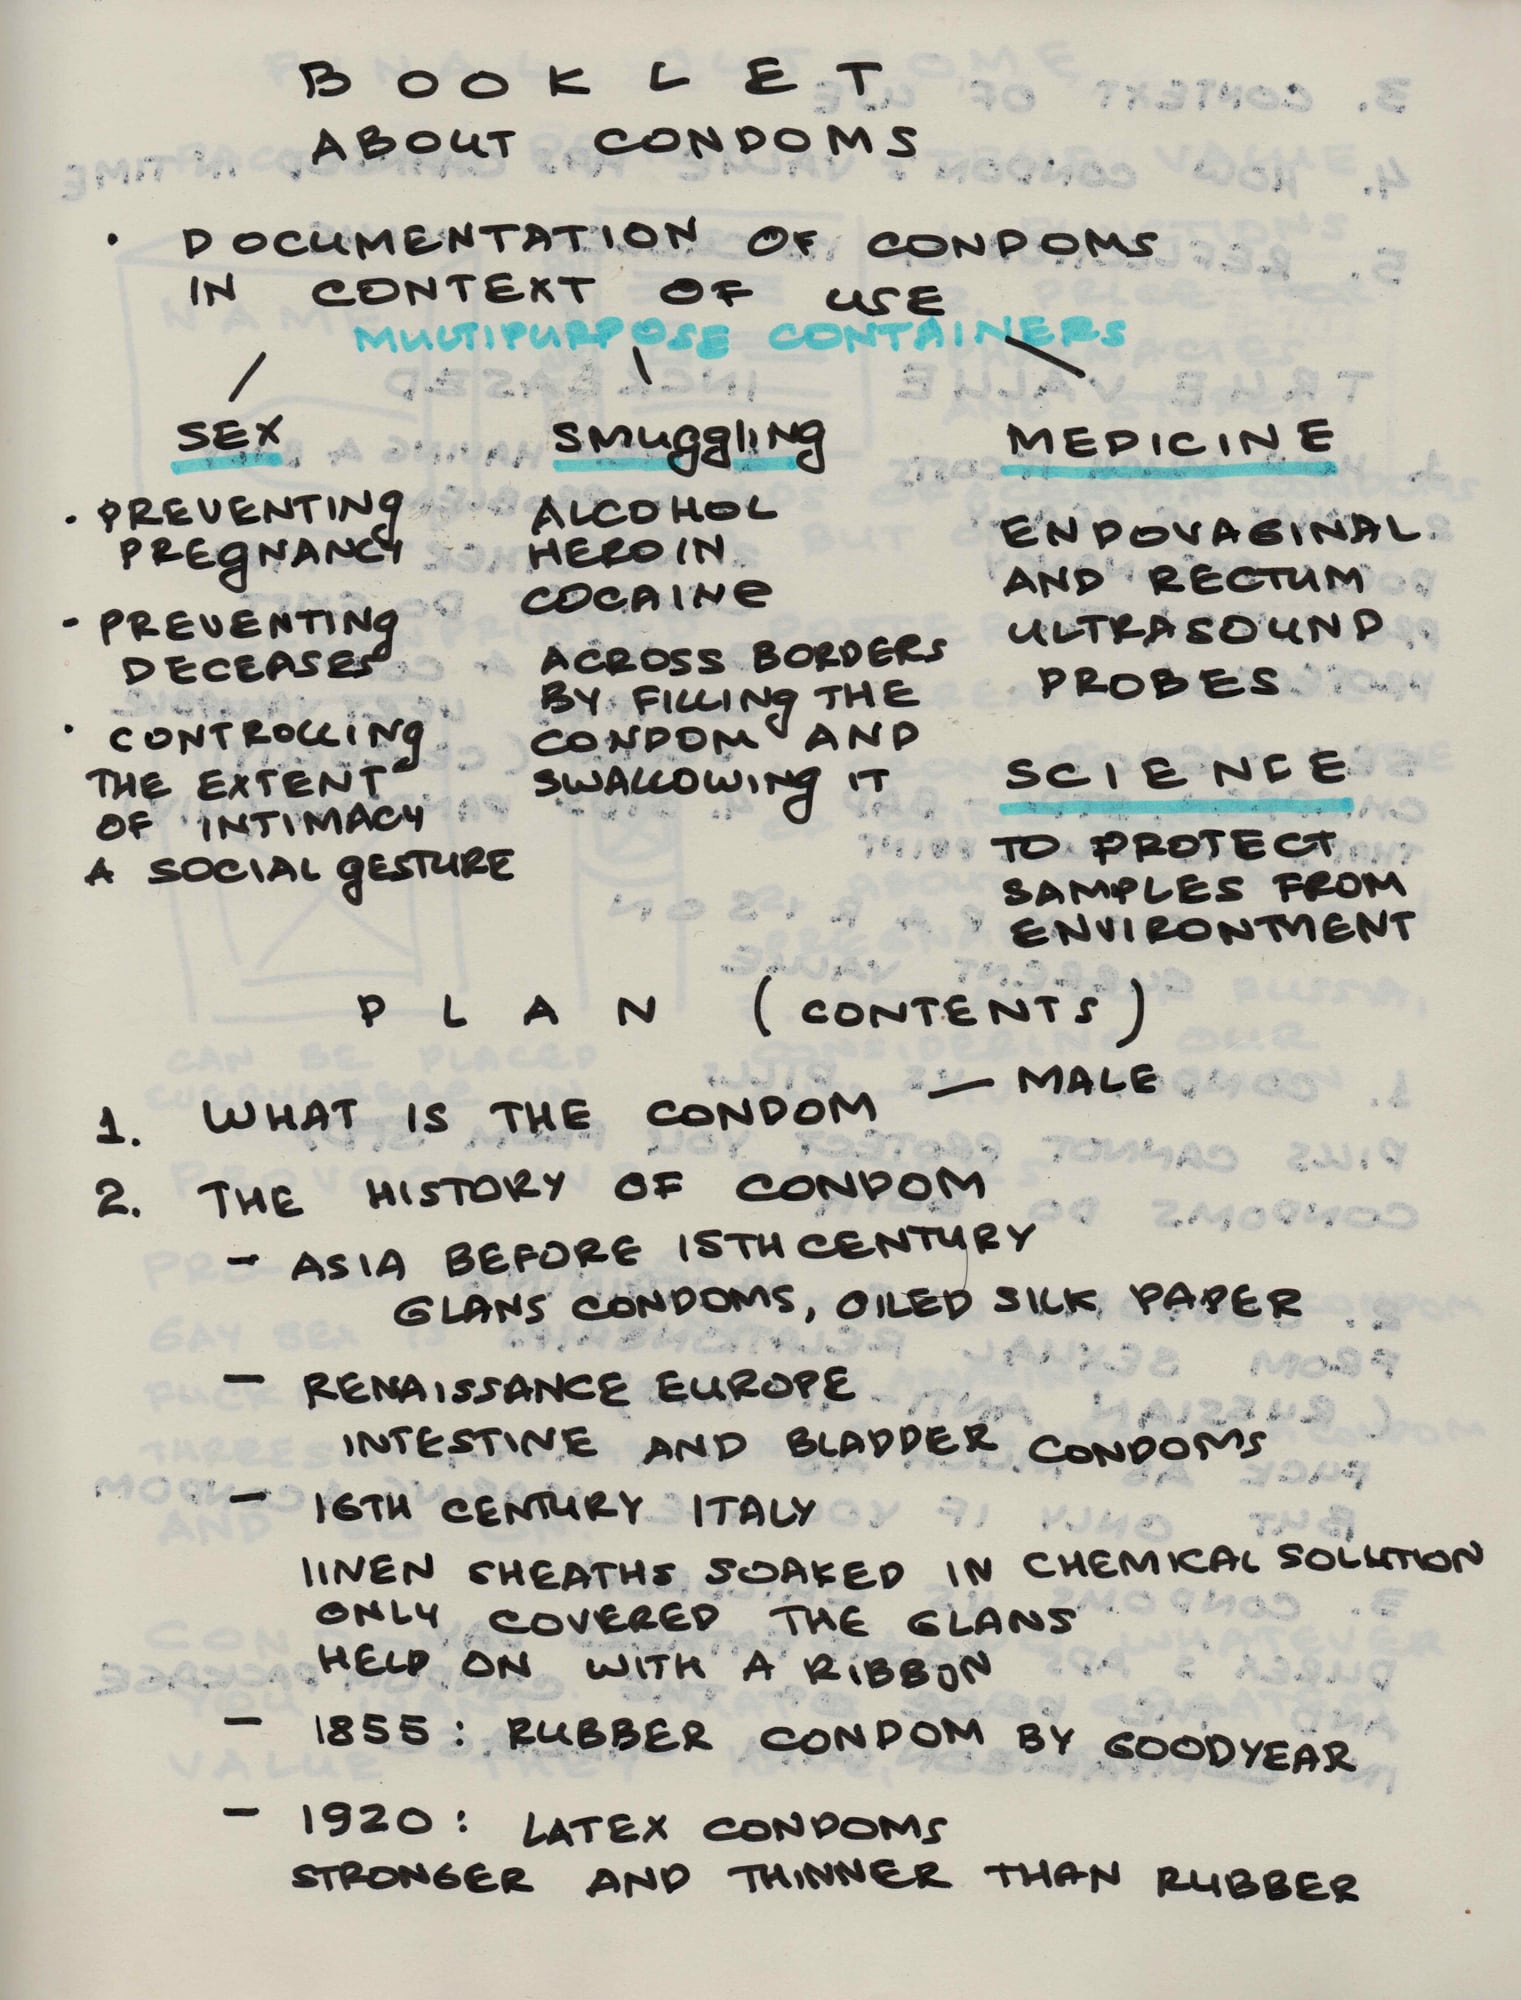 BOOKLET
ABOUT CONDOMS
· DOCUMENTATION OF CONDOMS
IN CONTEXT OF USE
MULTIPURPOSE CONTAINERS
SEX
· PREVENTING
PREGNANCY
- PREVENTING
DECEASES
· CONTROLLING
THE EXTENT
OF INTIMACY
A SOCIAL GESTURE
SMUGGLING
ALCOHOL
HEROIN
COCAINE
ACROSS BORDERS
BY FILLING THE
CONDOM AND
SWALLOWING IT
MEDICINE
ENDOVAGINAL
AND RECTUM
ULTRASOUND
PROBES
SCIENCE
TO PROTECT
SAMPLES FROM
ENVIRONTMENT
PLAN (CONTENTS)
1. WHAT IS THE CONDOM — MALE
2. THE HISTORY OF CONDOM
- ASIA BEFORE 15TH CENTURY
GLANS CONDOMS, OILED SILK PAPER
- RENAISSANCE EUROPE
INTESTINE AND BLADDER CONDOMS
- 16TH CENTURY ITALY
LINEN SHEATHS SOAKED IN CHEMICAL SOLUTION
ONLY COVERED THE GLANS
HELD ON WITH A RIBBON
- 1855: RUBBER CONDOM BY GOODYEAR
- 1920: LATEX CONDOMS
STRONGER AND THINNER THAN RUBBER